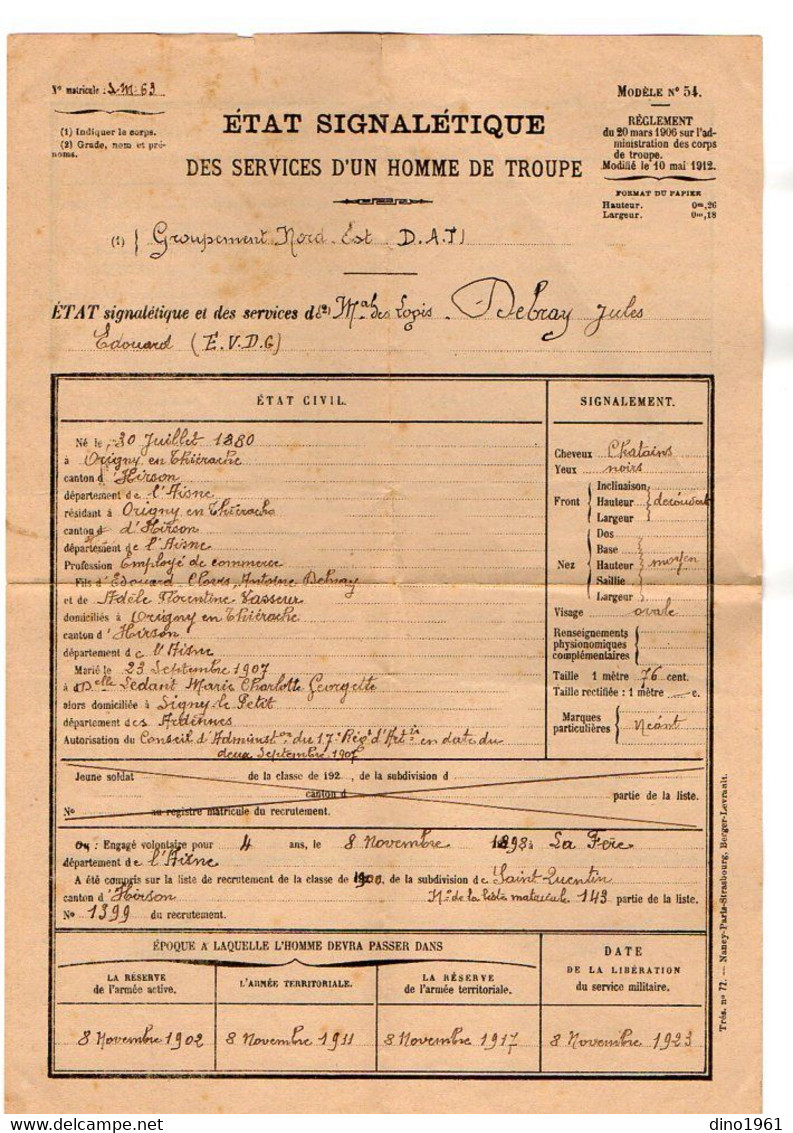 N° matricule : S.M. 63
(1) Indiquer le corps.
(2) Grade, nom et pré-
noms.
MODÈLE N° 54.
RÈGLEMENT
du 20 mars 1906 sur l'ad-
ministration des corps
de troupe.
Modifié le 10 mai 1912.
FORMAT DU PAPIER
Hauteur. 0m,26
Largeur. 0m,18
ÉTAT SIGNALÉTIQUE
DES SERVICES D'UN HOMME DE TROUPE
(1) Groupement Nord-Est D.A.T
ÉTAT signalétique et des services d(2) Mal des Logis Debray Jules
Edouard (E.V.D.G)
ÉTAT CIVIL.
Né le 30 Juillet 1880
à Origny en Thiérache
canton d'Hirson
département de l'Aisne
résidant à Origny en Thiérache
canton d'Hirson
département de l'Aisne
Profession Employé de commerce
Fils d'Edouard Clovis Antoine Debray
et de Adèle Florentine Vasseur
domiciliés à Origny en Thiérache
canton d'Hirson
département de l'Aisne
Marié le 23 Septembre 1907
à Delle Ledant Marie Charlotte Georgette
alors domiciliée à Signy le Petit
département des Ardennes
Autorisation du Conseil d'Adminston du 17e Régt d'Artie en date du
deux Septembre 1907
SIGNALEMENT.
Cheveux Chatains
Yeux noirs
Front Inclinaison Hauteur Largeur découvert
Nez Dos Base Hauteur Saillie Largeur moyen
Visage ovale
Renseignements
physionomiques
complémentaires
Taille 1 mètre 76 cent.
Taille rectifiée : 1 mètre — c.
Marques
particulières Néant
Jeune soldat de la classe de 192 , de la subdivision d
canton d partie de la liste.
N° au registre matricule du recrutement.
Ou : Engagé volontaire pour 4 ans, le 8 Novembre 1898 : La Fère
département de l'Aisne
A été compris sur la liste de recrutement de la classe de 1900, de la subdivision de Saint-Quentin
canton d'Hirson N° de la liste matricule 143 partie de la liste.
N° 1399 du recrutement.
ÉPOQUE A LAQUELLE L'HOMME DEVRA PASSER DANS
LA RÉSERVE
de l'armée active.
L'ARMÉE TERRITORIALE.
LA RÉSERVE
de l'armée territoriale.
DATE
DE LA LIBÉRATION
du service militaire.
8 Novembre 1902
8 Novembre 1911
8 Novembre 1917
8 Novembre 1923
Trés. n° 77. — Nancy-Paris-Strasbourg, Berger-Levrault.
dino1961